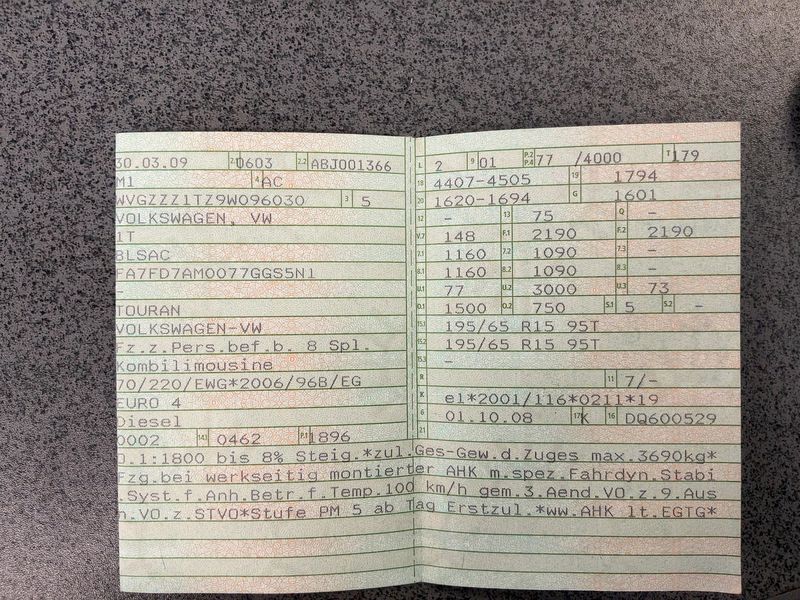 30.03.09 2.1 0603 2.2 ABJ001366
M1 4 AC
WVGZZZ1TZ9W096030 3 5
VOLKSWAGEN, VW
1T
BLSAC
FA7FD7AM0077GGS5N1
-
TOURAN
VOLKSWAGEN-VW
Fz.z.Pers.bef.b. 8 Spl.
Kombilimousine
70/220/EWG*2006/96B/EG
EURO 4
Diesel
0002 14.1 0462 P.1 1896
L 2 9 01 P.2 P.4 77 /4000 T 179
18 4407-4505 19 1794
20 1620-1694 G 1601
12 - 13 75 Q -
V.7 148 F.1 2190 F.2 2190
7.1 1160 7.2 1090 7.3 -
8.1 1160 8.2 1090 8.3 -
U.1 77 U.2 3000 U.3 73
O.1 1500 O.2 750 S.1 5 S.2 -
15.1 195/65 R15 95T
15.2 195/65 R15 95T
15.3 -
R 11 7/-
K e1*2001/116*0211*19
6 01.10.08 17 K 16 DQ600529
21
O.1:1800 bis 8% Steig.*zul.Ges-Gew.d.Zuges max.3690kg*
Fzg.bei werkseitig montierter AHK m.spez.Fahrdyn.Stabi
.Syst.f.Anh.Betr.f.Temp.100 km/h gem.3.Aend.VO.z.9.Aus
n.VO.z.STVO*Stufe PM 5 ab Tag Erstzul.*ww.AHK lt.EGTG*